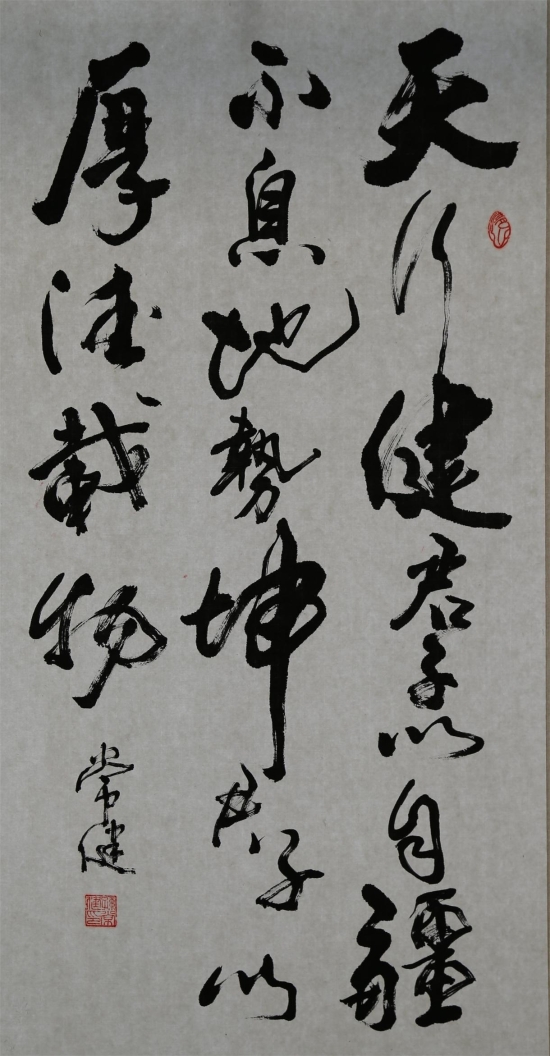 天行健君子以自疆
不息地勢坤君子以
厚德載物
常健